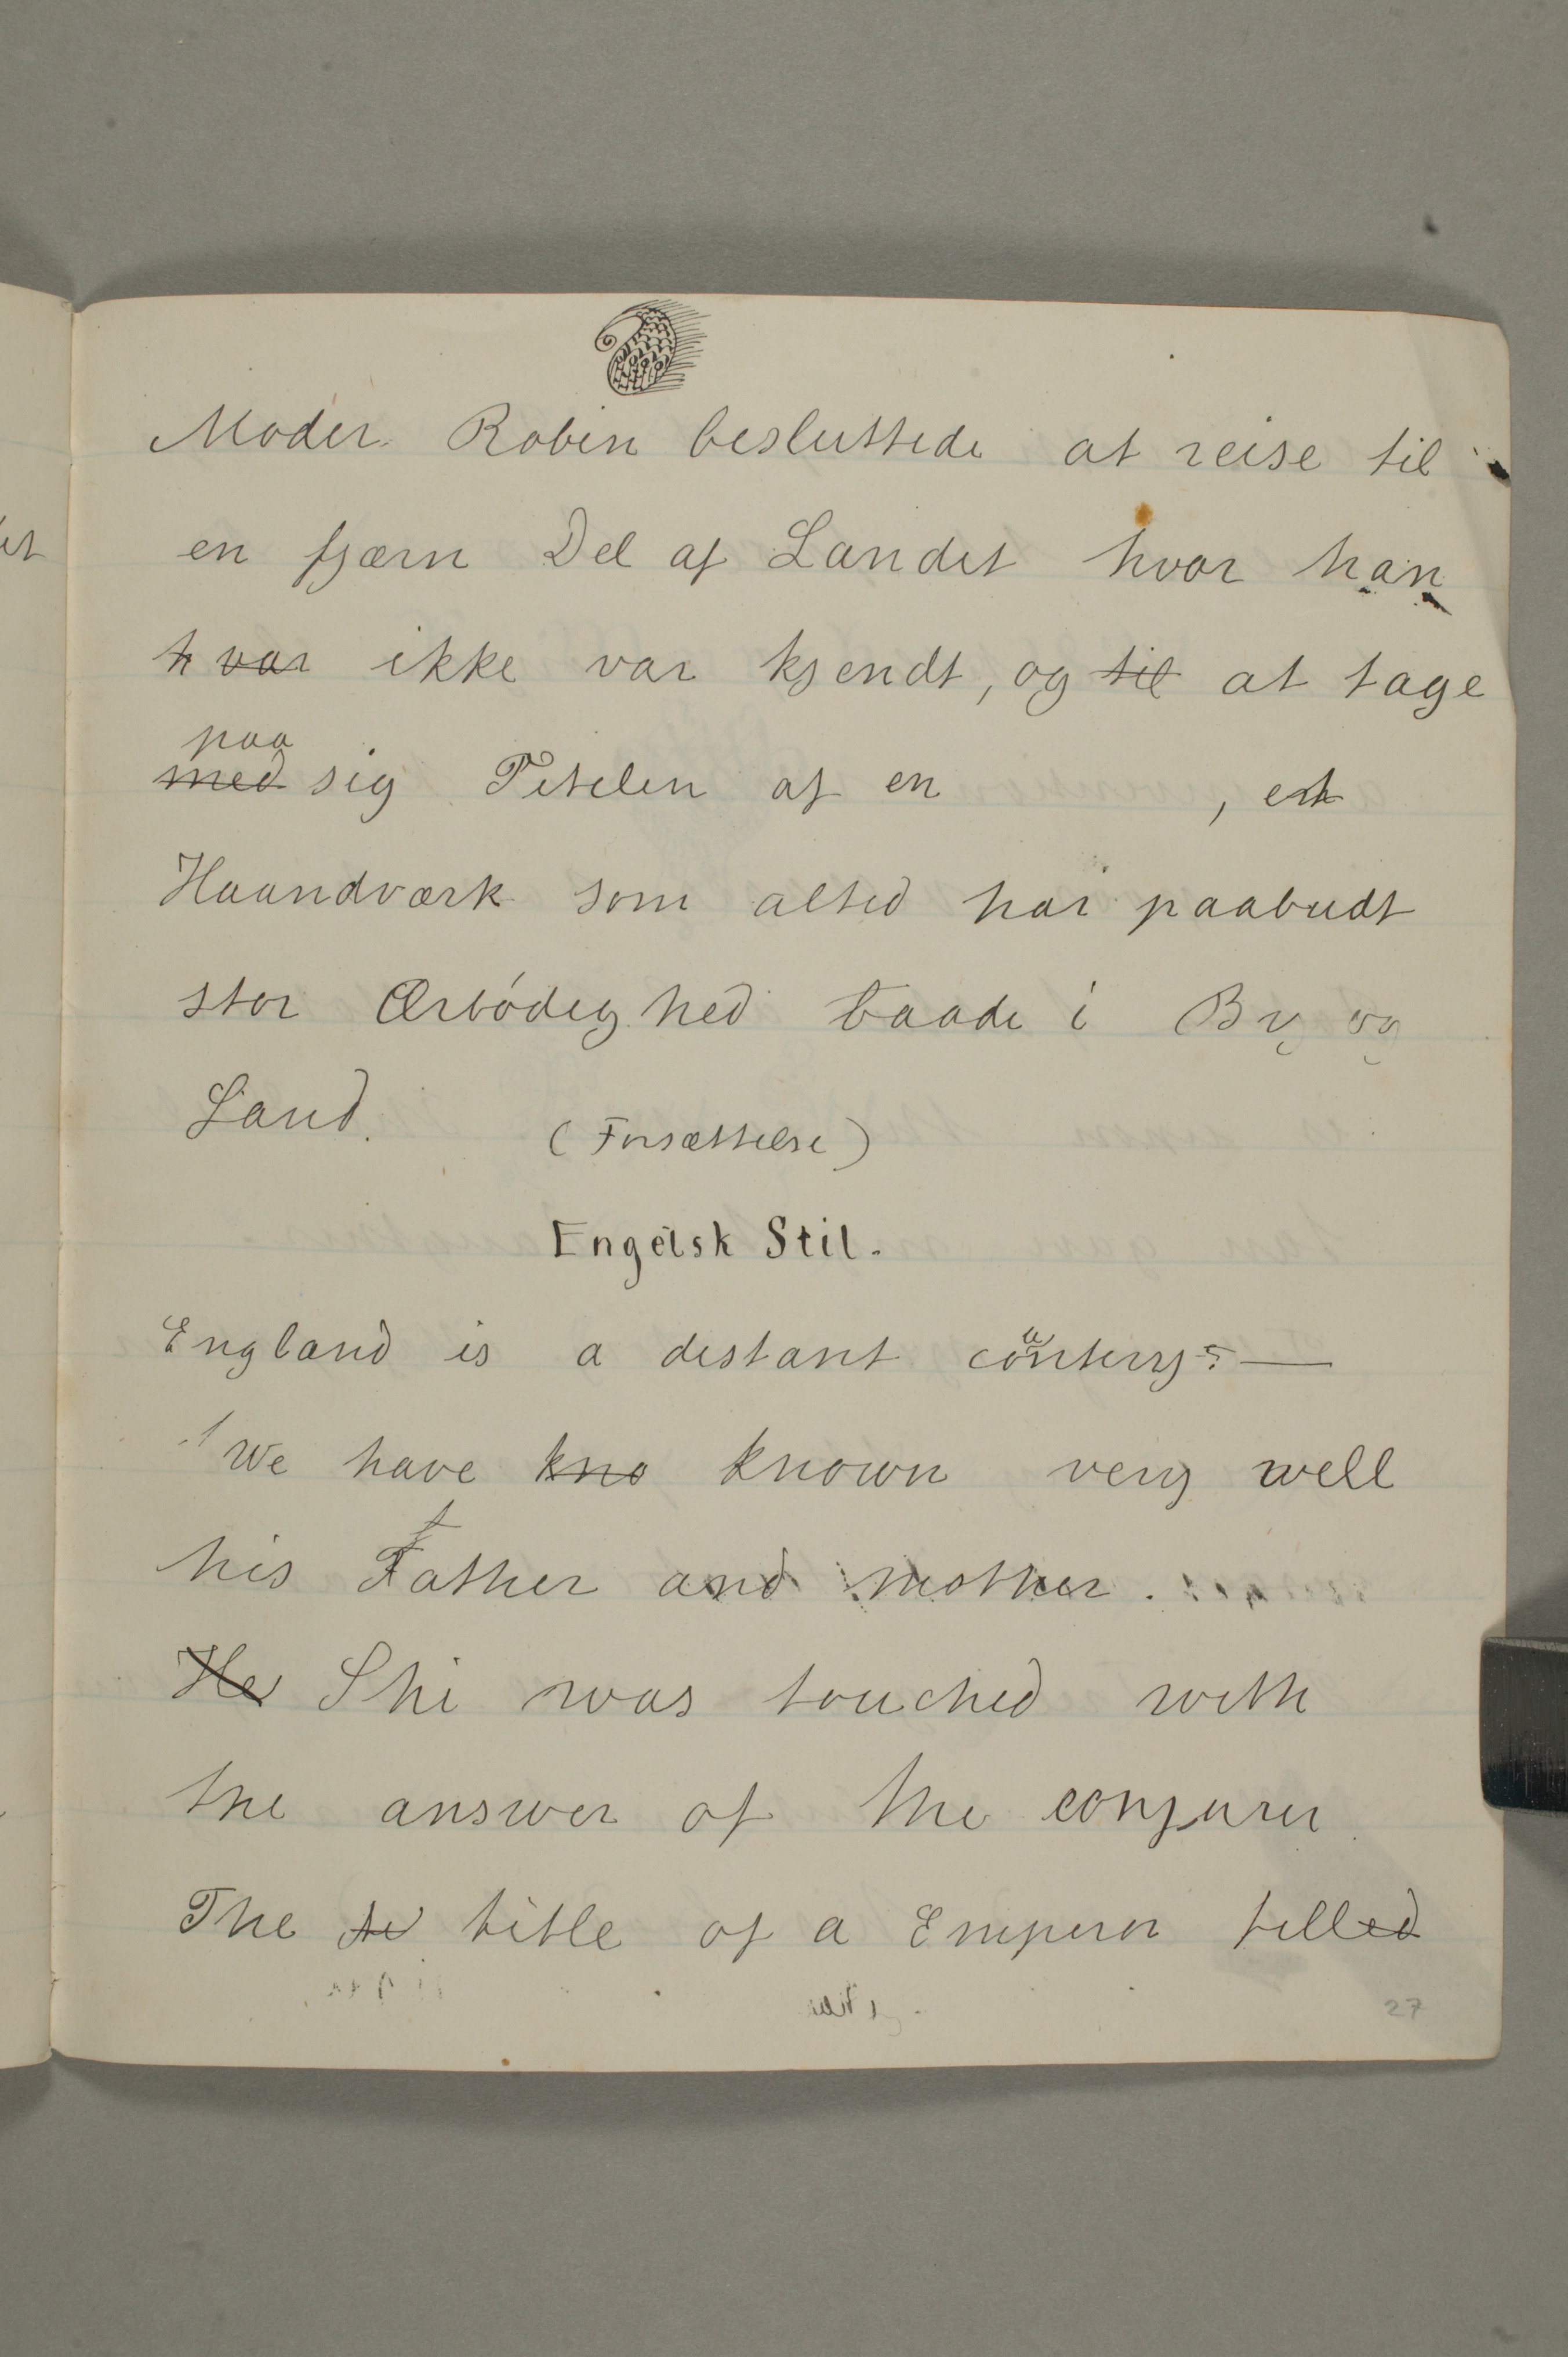 Moder. Robin besluttede at reise til
en fjærn Del af Landet hvor han
hvar ikke var kjendt, og til at tage
paa
med sig Titelen af en , et
Haandværk som altid har paabudt
stor Ærbódighed baade i By og
Land.
(Forsættelse)
Engelsk Stil.
England is a distant contery.
We have kno known very well
his Father and mother.
He She was touched with
the answer of the conjurer
The te title of a Emperor filled
27